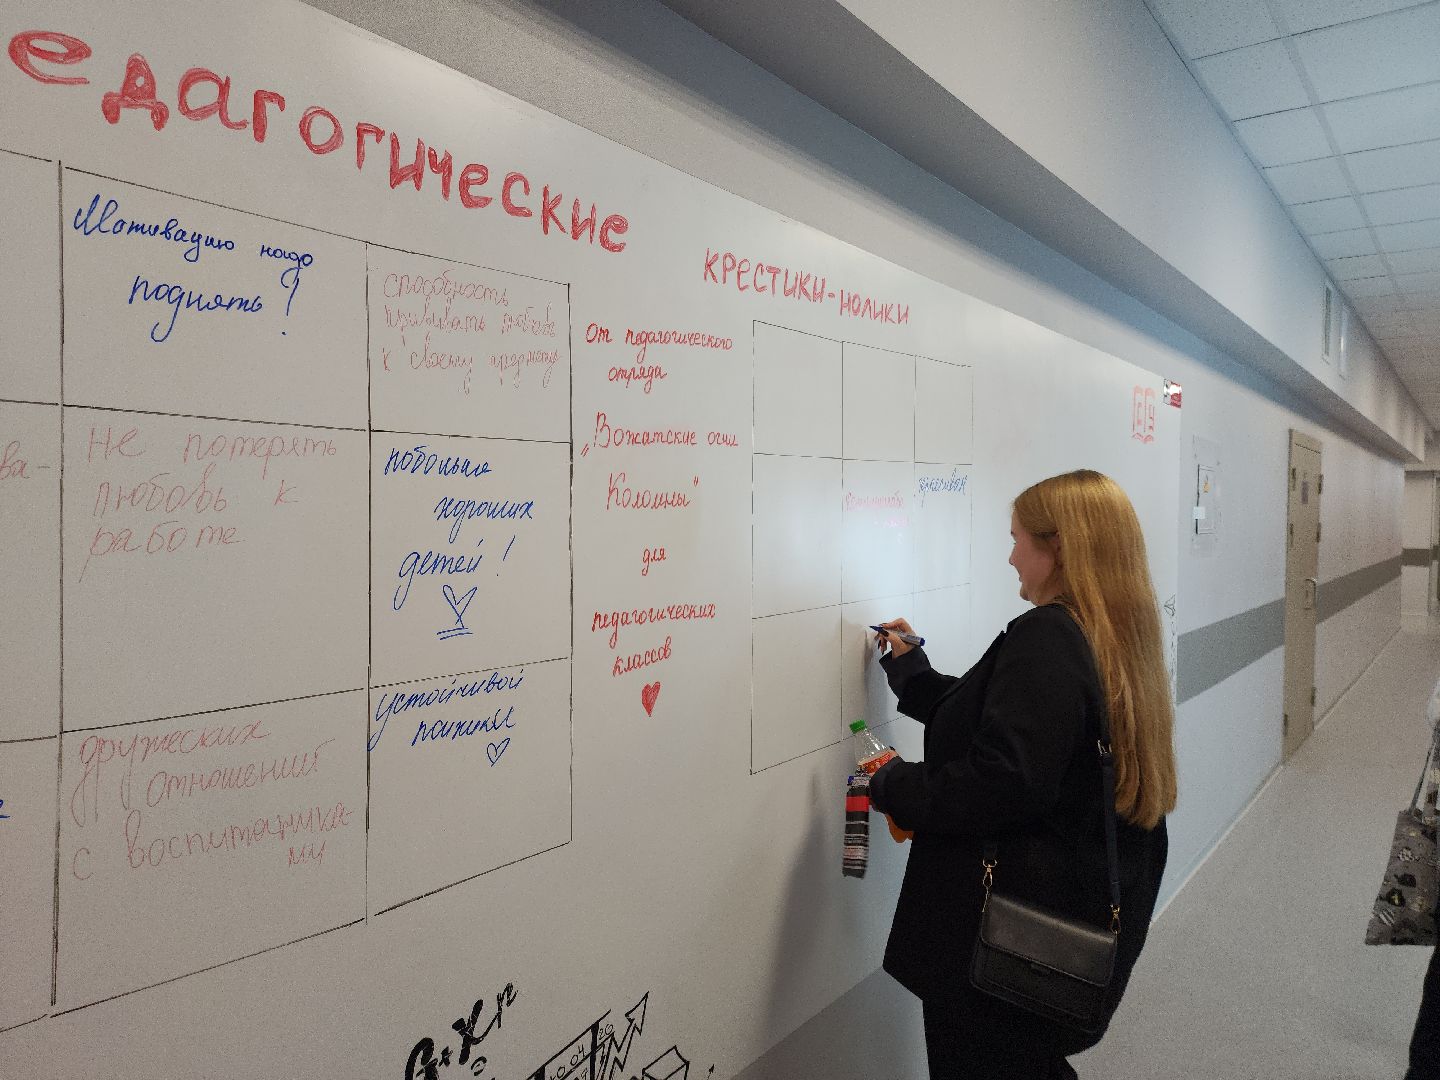 едагогические
КРЕСТИКИ-НОЛИКИ
Мотивацию надо
поднять!
способность
прививать любовь
к своему
ва-
не потерять
любовь к
работе
побольше
хороших
детей!
дружеских
отношений
с воспитанника-
ми
устойчивой
психики
От педагогического
отряда
„Вожатские огни
Коломны"
для
педагогических
классов
G*Xr